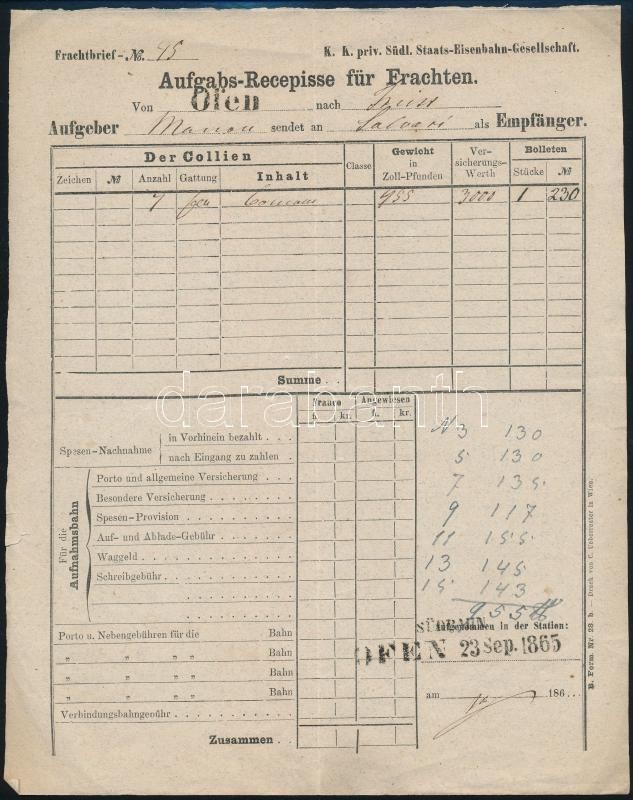 Frachtbrief-№. 45 K. K. priv. Südl. Staats-Eisenbahn-Gesellschaft.
Aufgabs-Recepisse für Frachten.
Von Ofen nach Triest
Aufgeber sendet an als Empfänger.
Der Collien Classe Gewicht in Zoll-Pfunden Versicherungs-Werth Bolleten
Zeichen № Anzahl Gattung Inhalt Stücke №
7 955 3000 1 230
Summe . .
darabanth
Franco Angewiesen
fl. kr. fl. kr.
Spesen-Nachnahme
in Vorhinein bezahlt . . .
nach Eingang zu zahlen .
Für die Aufnahmsbahn
Porto und allgemeine Versicherung
Besondere Versicherung . . .
Spesen-Provision . . . . .
Auf- und Ablade-Gebühr . . .
Waggeld . . . . . . . .
Schreibgebühr . . . . . . .
N 3 130
5 130
7 135
9 117
11 155
13 145
15 143
955 ℔
Porto u. Nebengebühren für die Bahn
„ „ „ „ Bahn
„ „ „ „ Bahn
„ „ „ „ Bahn
Verbindungsbahngebühr . . . . . . .
Zusammen . . .
Aufgenommen in der Station:
SÜDBAHN
OFEN 23 Sep. 1865
am 186
B. Form. Nr. 28. b. — Druck von C. Ueberreuter in Wien.